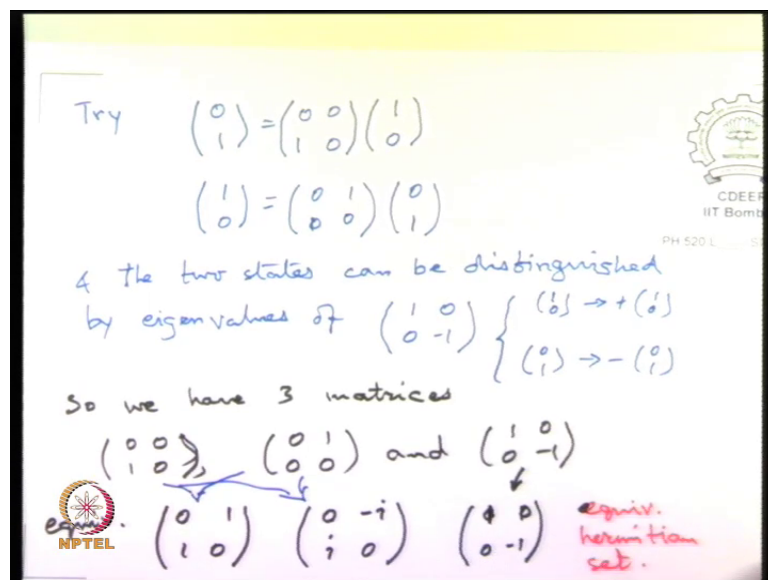 Try (0 1) = (0 0 1 0) (1 0)
(1 0) = (0 1 0 0) (0 1)
CDEEP
IIT Bomb
PH 520 L
& the two states can be distinguished
by eigenvalues of (1 0 0 -1) { (1 0) → + (1 0)
(0 1) → - (0 1)
So we have 3 matrices
(0 0 1 0), (0 1 0 0) and (1 0 0 -1)
equiv. (0 1 1 0) (0 -i i 0) (1 0 0 -1) equiv.
hermitian
set.
NPTEL